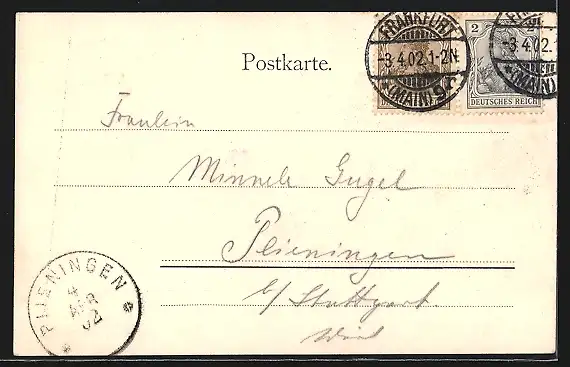 FRANKFURT
-3.4.02.1-2N.
(MAIN)
2
2
DEUTSCHES REICH
-3.4.02.
(MAIN)
Postkarte.
Fräulein
Minnele Gugel
Plieningen
b/ Stuttgart
Würt
PLIENINGEN
4 APR 02